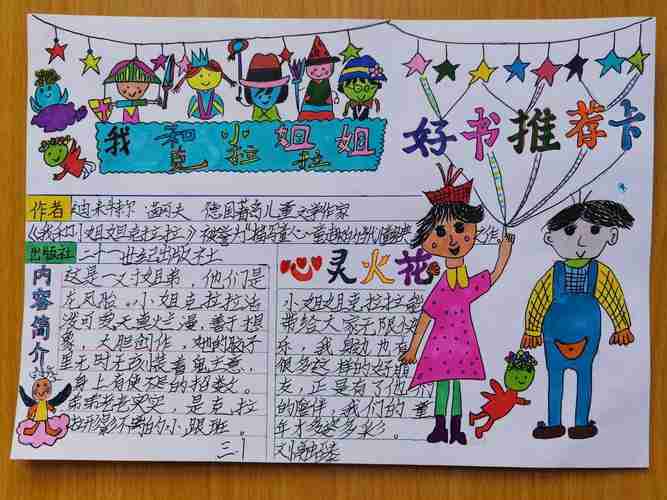 我和小姐姐
克拉拉
好书推荐卡
作者 迪米特尔·茵可夫 德国著名儿童文学作家
《我和小姐姐克拉拉》被誉为"描写童心童趣的
作"
出版社 二十一世纪出版社
内容简介
这是一对姐弟，他们是
龙凤胎。小姐克拉拉活
泼可爱天真烂漫，善于想
象，大胆创作，她的脑子
里无时无刻装着鬼主意，
身上有使不完的招数。
弟弟老老实实，是克拉
拉形影不离的小跟班。
心灵火花
小姐姐克拉拉能
带给大家无限
乐，我身边也有
很多这样的好朋
友，正是有了他们
的陪伴，我们的童
年才多姿多彩。
三·1